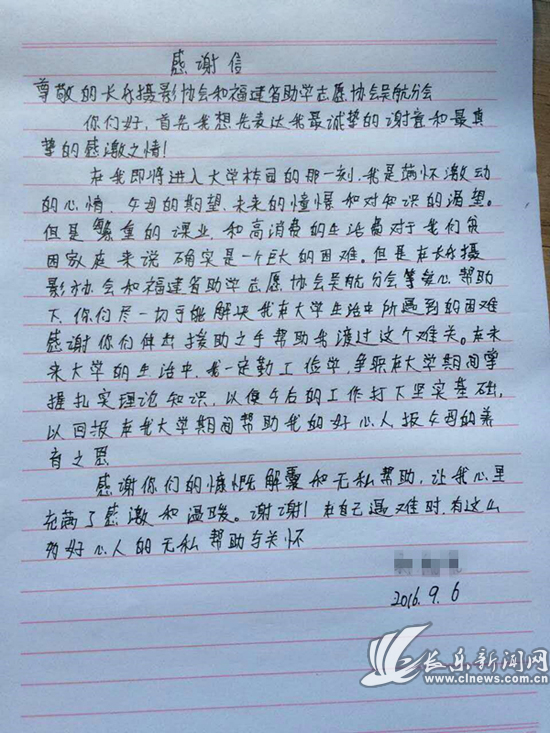 感谢信
尊敬的长乐摄影协会和福建省助学志愿协会吴航分会
你们好,首先我想先表达我最诚挚的谢意和最真
挚的感激之情!
在我即将进入大学校园的那一刻,我是满怀激动
的心情、父母的期望、未来的憧憬和对知识的渴望。
但是繁重的课业、和高消费的生活费对于我们贫
困家庭来说确实是一个巨大的困难。但是在长乐摄
影协会和福建省助学志愿协会吴航分会等爱心帮助
下,你们尽一切可能解决我在大学生活中所遇到的困难
感谢你们伸出援助之手帮助我渡过这个难关。在未
来大学的生活中,我一定勤工俭学,争取在大学期间掌
握扎实理论知识,以便今后的工作打下坚实基础,
以回报在我大学期间帮助我的好心人报父母的养
育之恩
感谢你们的慷慨解囊和无私帮助,让我心里
充满了感激和温暖。谢谢!在自己遇难时,有这么
多好心人的无私帮助与关怀
2016.9.6
长乐新闻网
www.clnews.com.cn